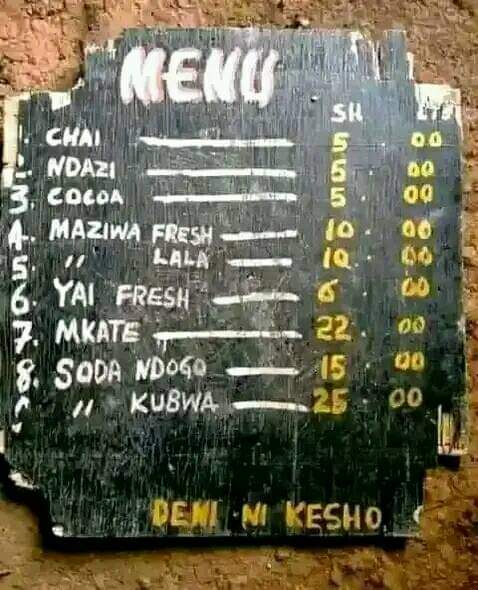 MENU
SH CTS
1. CHAI 5 00
2. NDAZI 5. 00
3. COCOA 5. 00
4. MAZIWA FRESH 10. 00
5. " LALA 10. 00
6. YAI FRESH 6 00
7. MKATE 22. 00
8. SODA NDOGO 15. 00
" KUBWA 25. 00
DENI NI KESHO